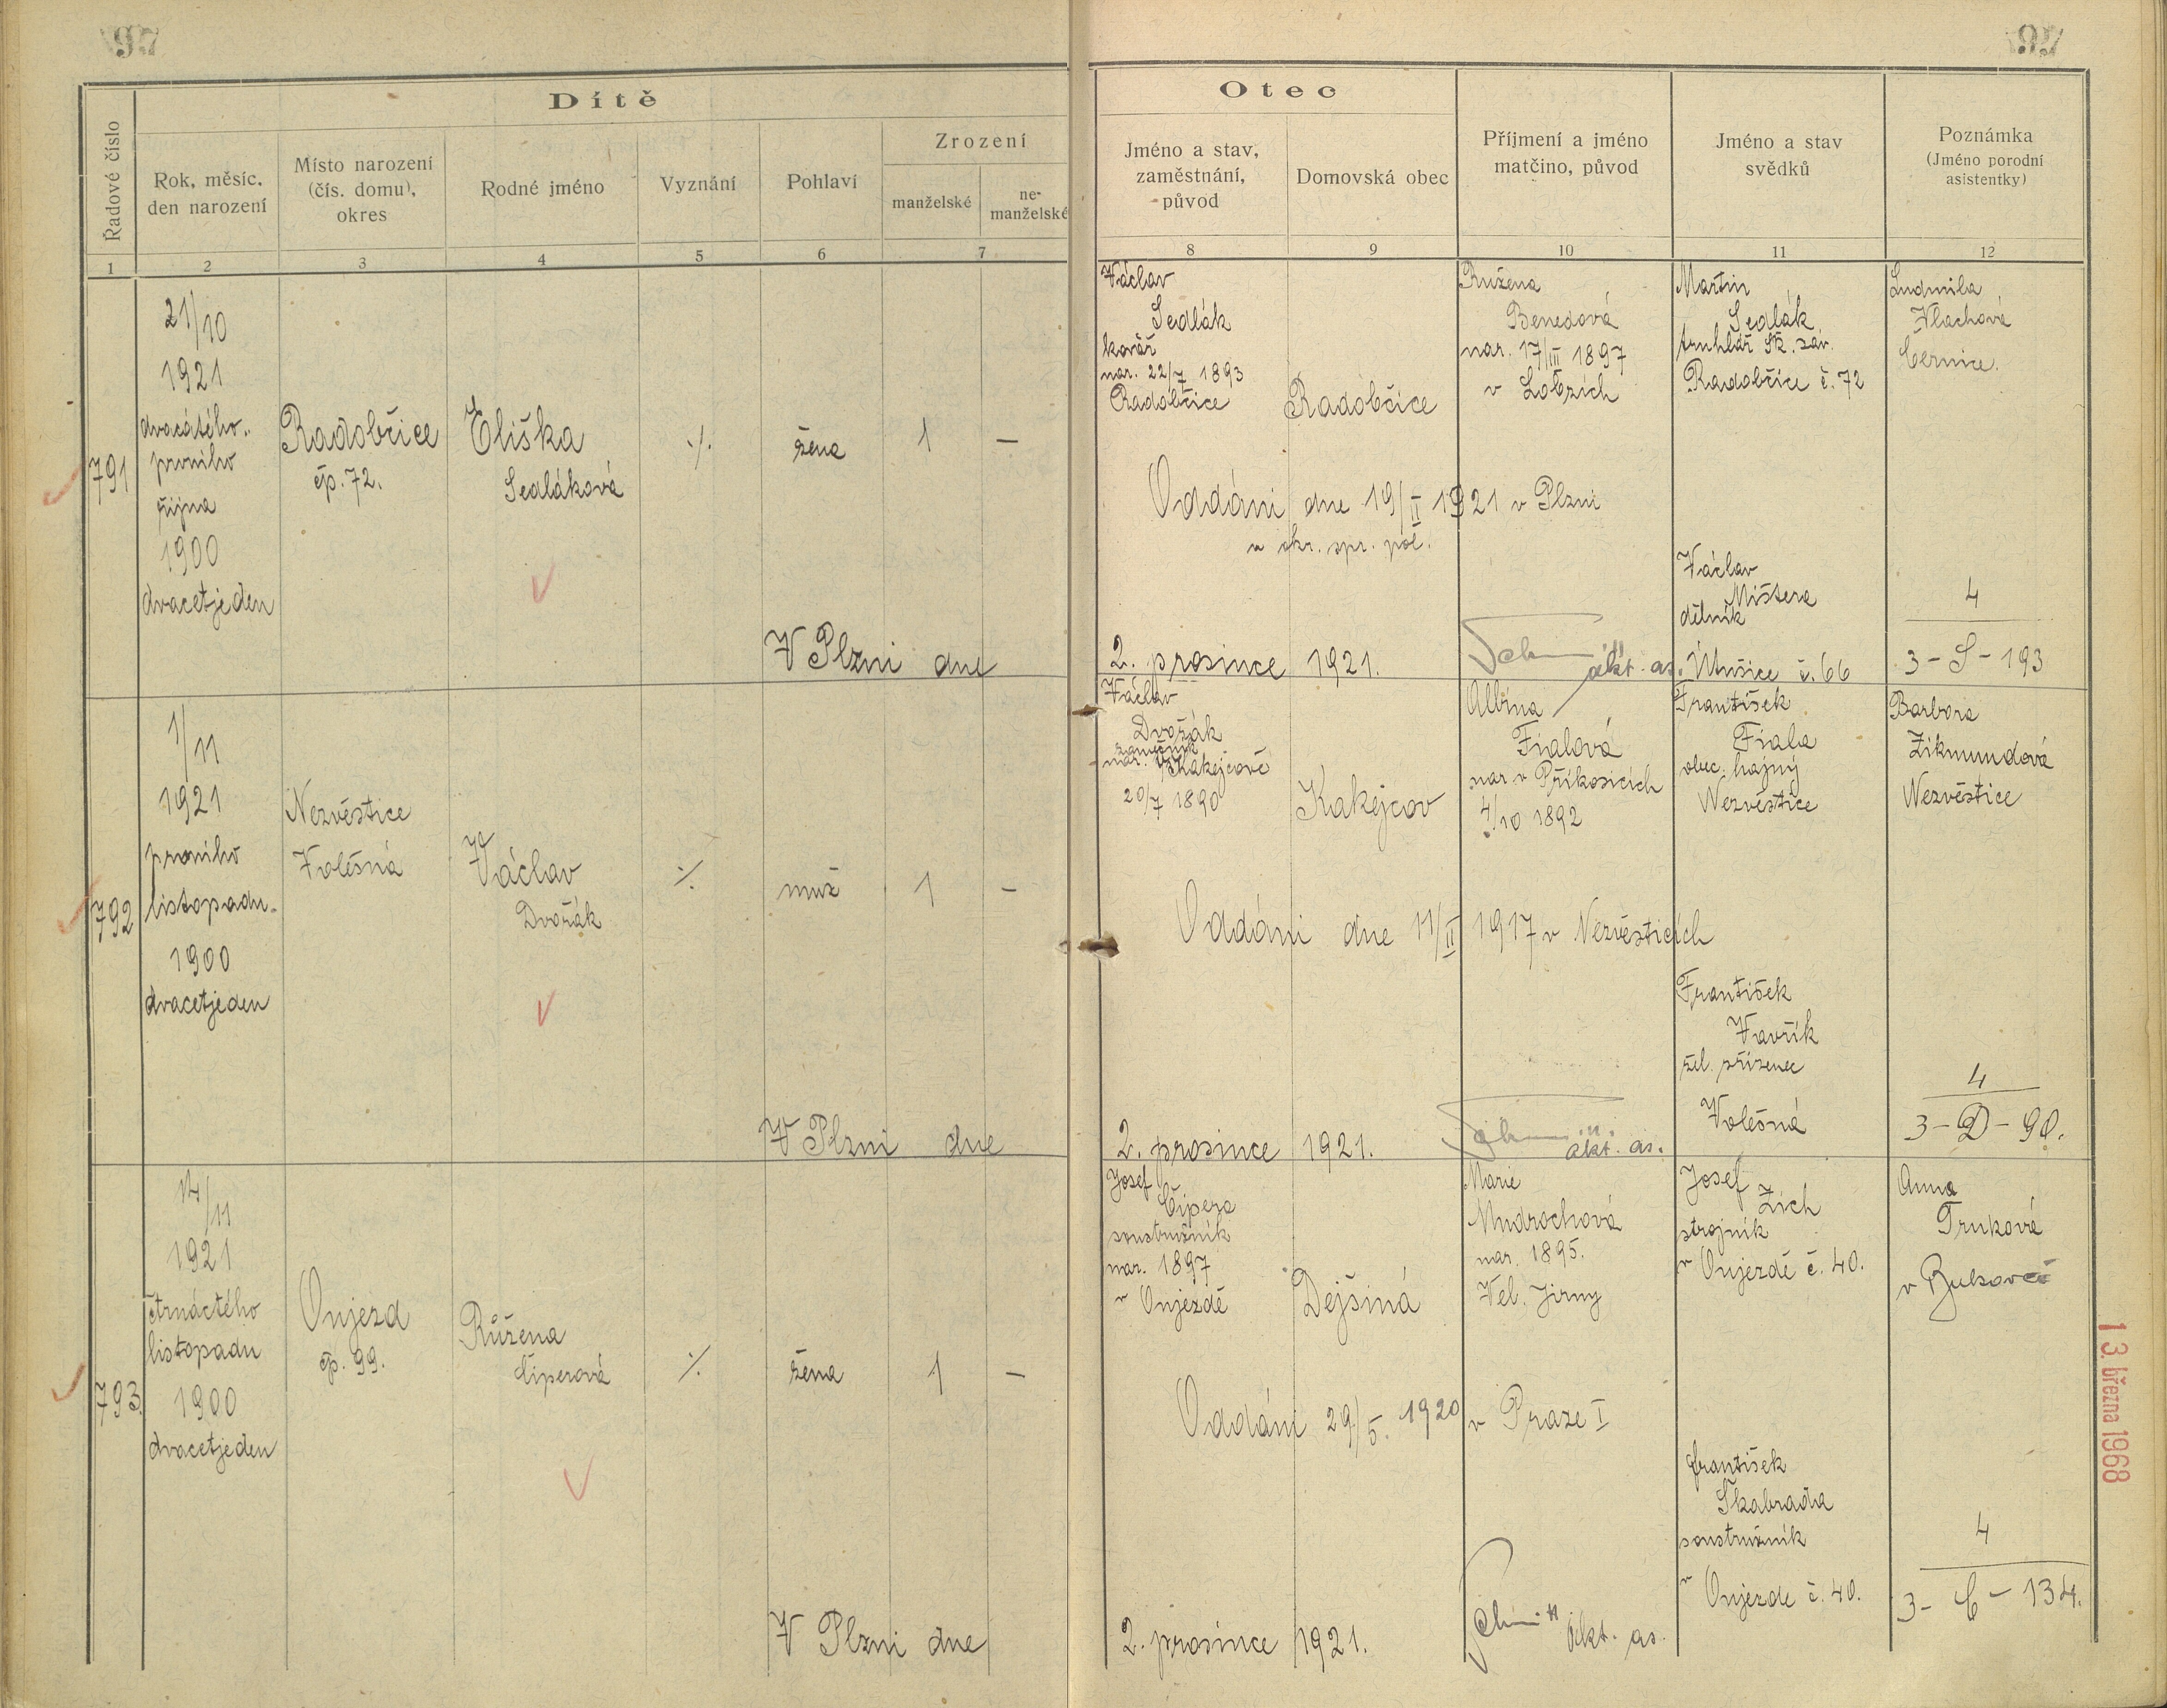 97
97
Dítě
Otec
Řadové číslo
Rok, měsíc.
den narození
Místo narození
(čís. domu),
okres
Rodné jméno
Vyznání
Pohlaví
Zrození
manželské
ne-
manželské
Jméno a stav,
zaměstnání,
původ
Domovská obec
Příjmení a jméno
matčino, původ
Jméno a stav
svědků
Poznámka
(Jméno porodní
asistentky)
1
2
3
4
5
6
7
8
9
10
11
12
791
21/10
1921
dvacátého
prvního
října
1900
dvacetjeden
Radobčice
čp. 72.
Eliška
Sedláková
./.
žena
1
—
Václav
Sedlák
kovář
nar. 22/7 1893
Radobčice
Radobčice
Růžena
Benedová
nar. 17/III 1897
v Lobzích
Martin
Sedlák
truhlář Šk. záv.
Radobčice č. 72
Ludmila
Vlachová
Černice.
Oddáni dne 19/II 1921 v Plzni
u okr. spr. pol.
Václav
Mištera
dělník
Útušice č. 66
4
3 - S - 193
V Plzni dne 2. prosince 1921.
akt. as.
792
1/11
1921
prvního
listopadu
1900
dvacetjeden
Nezvěstice
Volešná
Václav
Dvořák
./.
muž
1
—
Václav
Dvořák
zámečník
nar. v Kakejcově
20/7 1890
Kakejcov
Albina
Fialová
nar v Příkosicích
4/10 1892
František
Fiala
obec. hajný
Nezvěstice
Barbora
Zikmundová
Nezvěstice
Oddáni dne 11/II 1917 v Nezvěsticích
František
Vavřík
žel. zřízenec
Volešná
4
3 - D - 90.
V Plzni dne 2. prosince 1921.
akt. as.
793.
14/11
1921
čtrnáctého
listopadu
1900
dvacetjeden
Oujezd
čp. 99.
Růžena
Čiperová
./.
žena
1
—
Josef
Čipera
soustružník
nar. 1897
v Oujezdě
Dejšiná
Marie
Mudrochová
nar. 1895.
Vel. Jirny
Josef
Zich
strojník
v Oujezdě č. 40.
Anna
Trnková
v Bukovci
Oddáni 29/5. 1920 v Praze I
František
Škabrada
soustružník
v Oujezde č. 40.
4
3 - C - 134.
V Plzni dne 2. prosince 1921.
akt. as.
1 3. března 1968